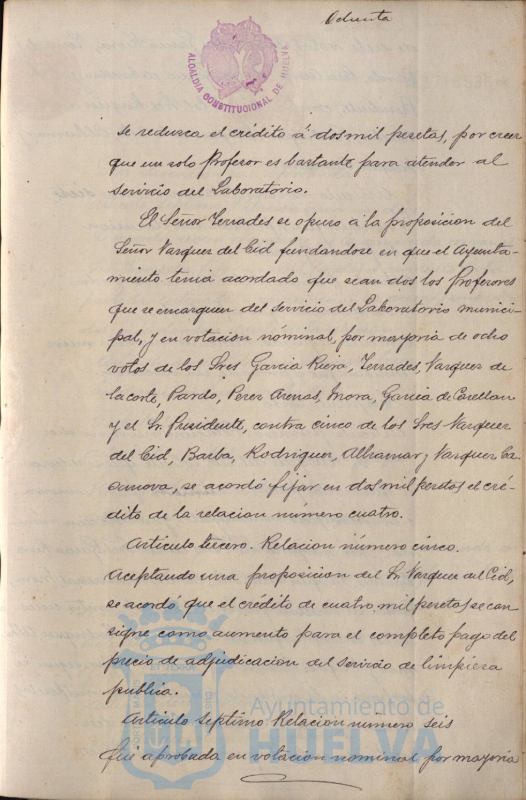 Ochenta
ALCALDIA CONSTITUCIONAL DE HUELVA
se reduzca el crédito á dos mil pesetas, por creer
que un solo Profesor es bastante para atender al
servicio del Laboratorio.
El Señor Terrades se opuso á la proposicion del
Señor Vazquez del Cid fundandose en que el Ayunta-
miento tenia acordado que sean dos los Profesores
que se encarguen del servicio del Laboratorio munici-
pal, y en votacion nóminal, por mayoria de ocho
votos de los Sres Garcia Riera, Terrades, Vazquez de
la corte, Pardo, Perez Arenas, Mora, Garcia de Castellan
y el Sr. Presidente, contra cinco de los Sres Vazquez
del Cid, Barba, Rodriguez, Alhamar y Vazquez Ca
sanova, se acordó fijar en dos mil pesetas el cré-
dito de la relacion número cuatro.
Articulo tercero. Relacion número cinco.
Aceptando una proposicion del Sr. Vazquez del Cid,
se acordó que el crédito de cuatro mil pesetas se con
signe como aumento para el completo pago del
precio de adjudicacion del servicio de limpieza
publica.
Articulo septimo. Relacion numero seis
Fué aprobada en votacion nominal por mayoria
Ayuntamiento de
HUELVA